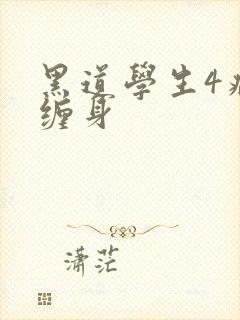 黑道學生4
缠身
潇茫